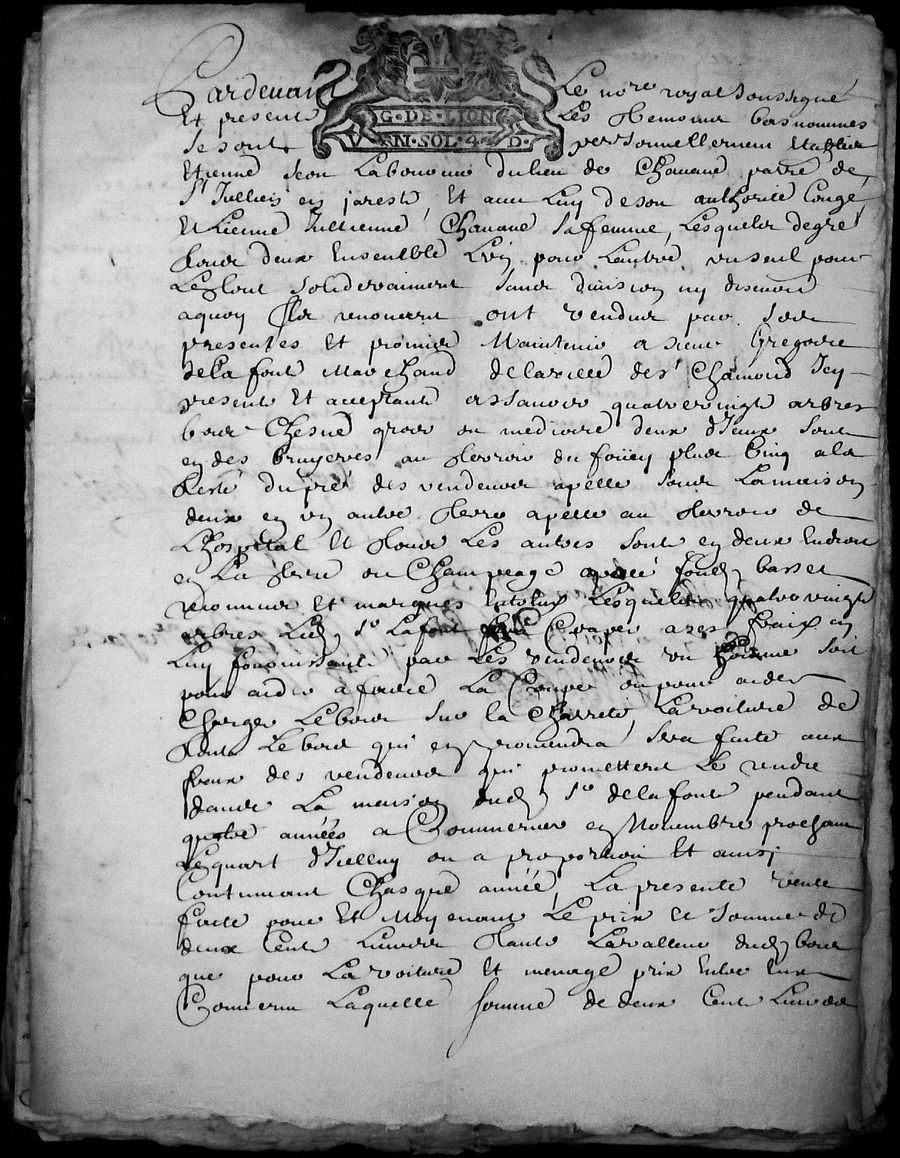 Pardevant Le no.re royal Soussigné
G·DE·LION
VN·SOL·4·D·
Et present Les temoins bas nommes
Se sont personnellement Etablis
Etienne Jean dulieu de Chavane parre de
St Jullien en jarest, Et avec Luy de son authorité Congé
Et Lienne Jullienne Chavane Sa femme, Lesquels de gré
pour deux Ensemble L'un pour Lautre, un seul pour
Le tout solidairement sans division ny discution
a quoy Ils renoncent ont vendus par Ses
presentes Et promis Maintenir a sieur Gregoire
de la font Marchand de la ville de St Chamond Icy
present Et acceptant assavoir quatre vingt arbres
bois Chesne gros ou mediocre deux d'Iceux sont
en des bruyeres au Terroir du plus Cinq a la
du pré des vendeurs apelle sous La maison
deux en un autre Terre apelle au Terroir de
L'hospital Et tous Les autres sont en deux Endroit
en La terre ou Champeage basset
reconnus et marqués Lesquels quatre vingt
arbres Led. Sr Lafont Couper a ses fraix en
Luy fournissant par Les vendeurs un homme soit
pour aider a faire La Coupe ou pour aider
Charger Le bois Sur la Charrete, La voiture de
tout Le bois qui en proviendra, sera faite aux
fraix des vendeurs qui promettent Le rendre
dans La maison dud. Sr de la font pendant
quatre années a Commencer en Novembre prochain
Le quart d'Icelluy ou a proportion Et ainsi
Continuant Chasque année, La presente vente
faite pour Et Moyenant Le prix et Somme de
deux Cent Livres tant La valleur dud. bois
que pour La voiture Et menage prix Entre Eux
Convenu Laquelle somme de deux Cent Livres